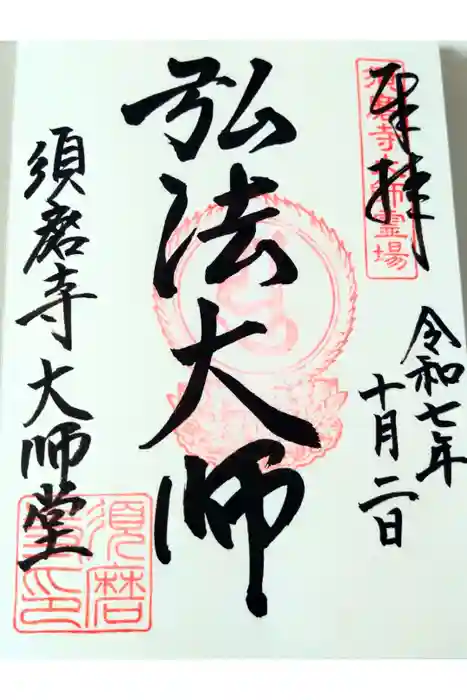 奉拝
須磨寺大師霊場
令和七年
十月二日
弘法大師
須磨寺大師堂
須磨
寺印